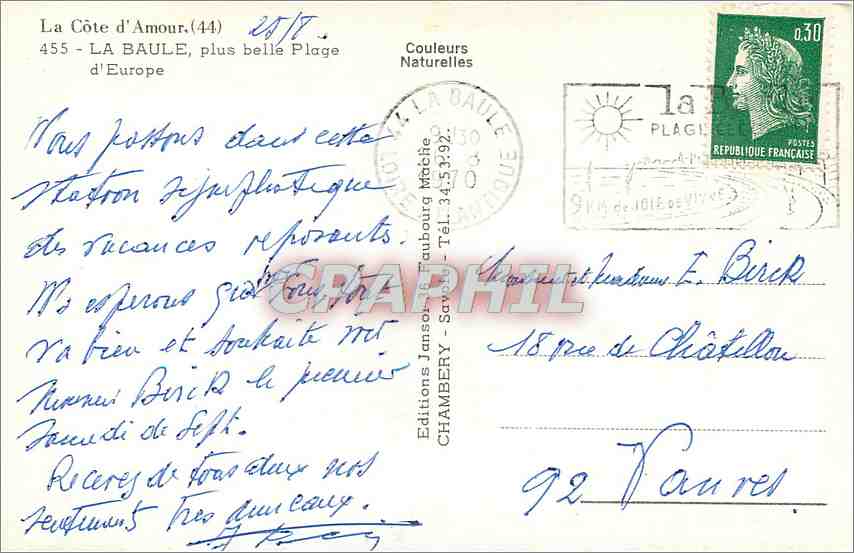 La Côte d'Amour (44) 25/8
455 - LA BAULE, plus belle Plage
d'Europe
Couleurs
Naturelles
Nous passons dans cette
station sympathique
des vacances reposantes.
Ns esperons que tout
va bien et souhaite voir
Monsieur Birck le premier
samedi de Sept.
Recevez de tous deux nos
sentiments très amicaux.
Editions Jansol 26 Faubourg Mâché
CHAMBERY - Savoie - Tél. 34.53.92
44 LA BAULE
LOIRE ATLANTIQUE
9H30
8
1970
la
PLAGE
9 KM de JOIE de VIVRE
0,30
POSTES
REPUBLIQUE FRANÇAISE
CPAPHIL
Monsieur et Madame E. Birck
18 rue de Châtillon
92 Vanves